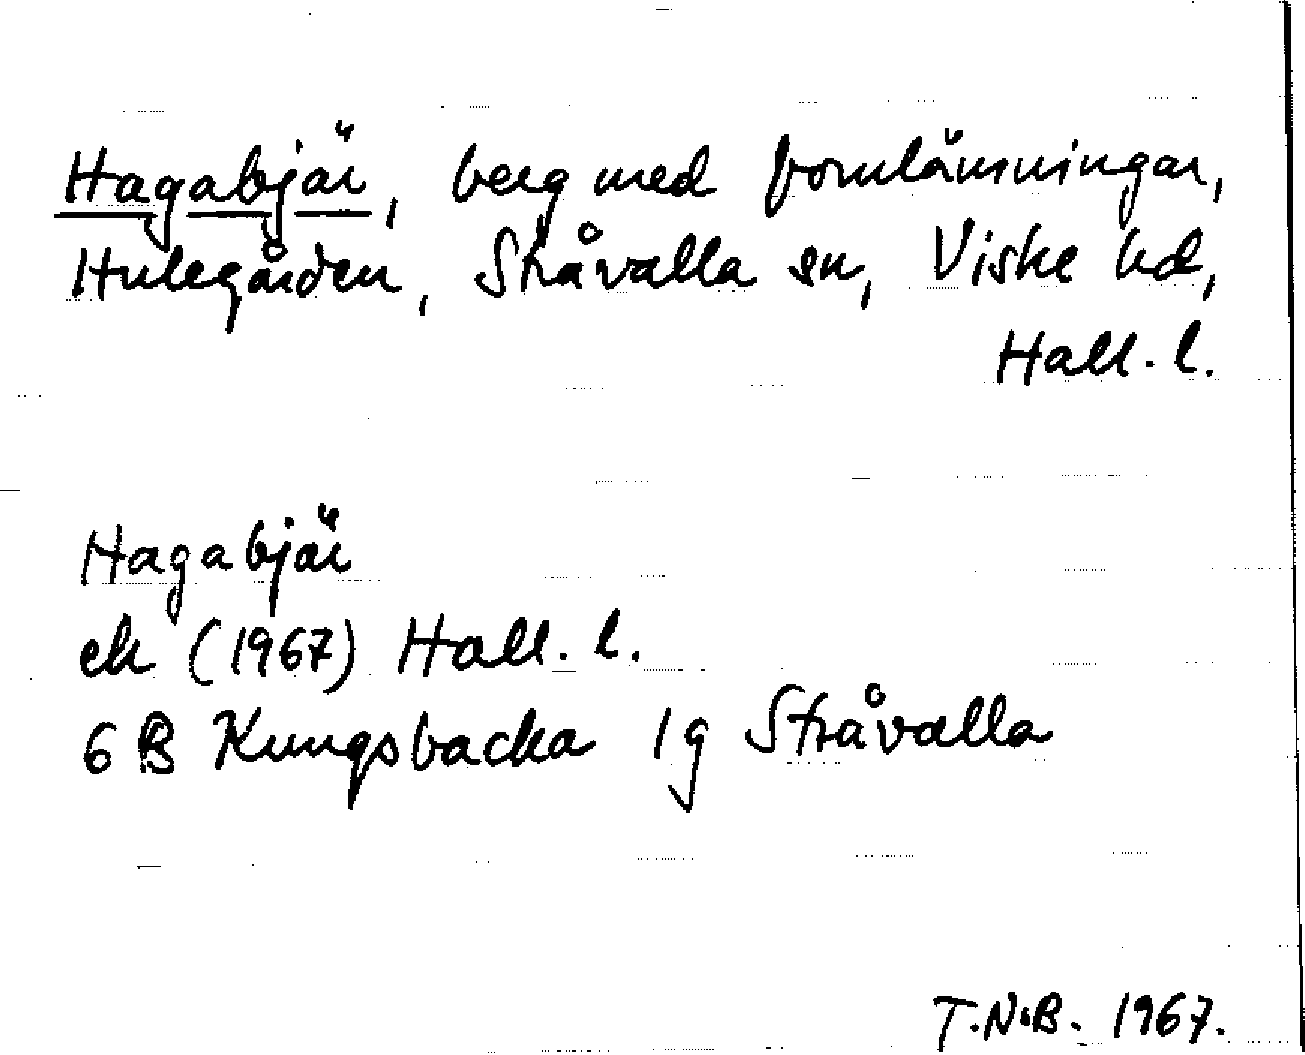 Hagabjär, berg med fornlämningar,
Hulegården, Stråvalla sn, Viske hd,
Hall. l.
Hagabjär
ek (1967) Hall. l.
6 B Kungsbacka 1g Stråvalla
T.N.B. 1967.